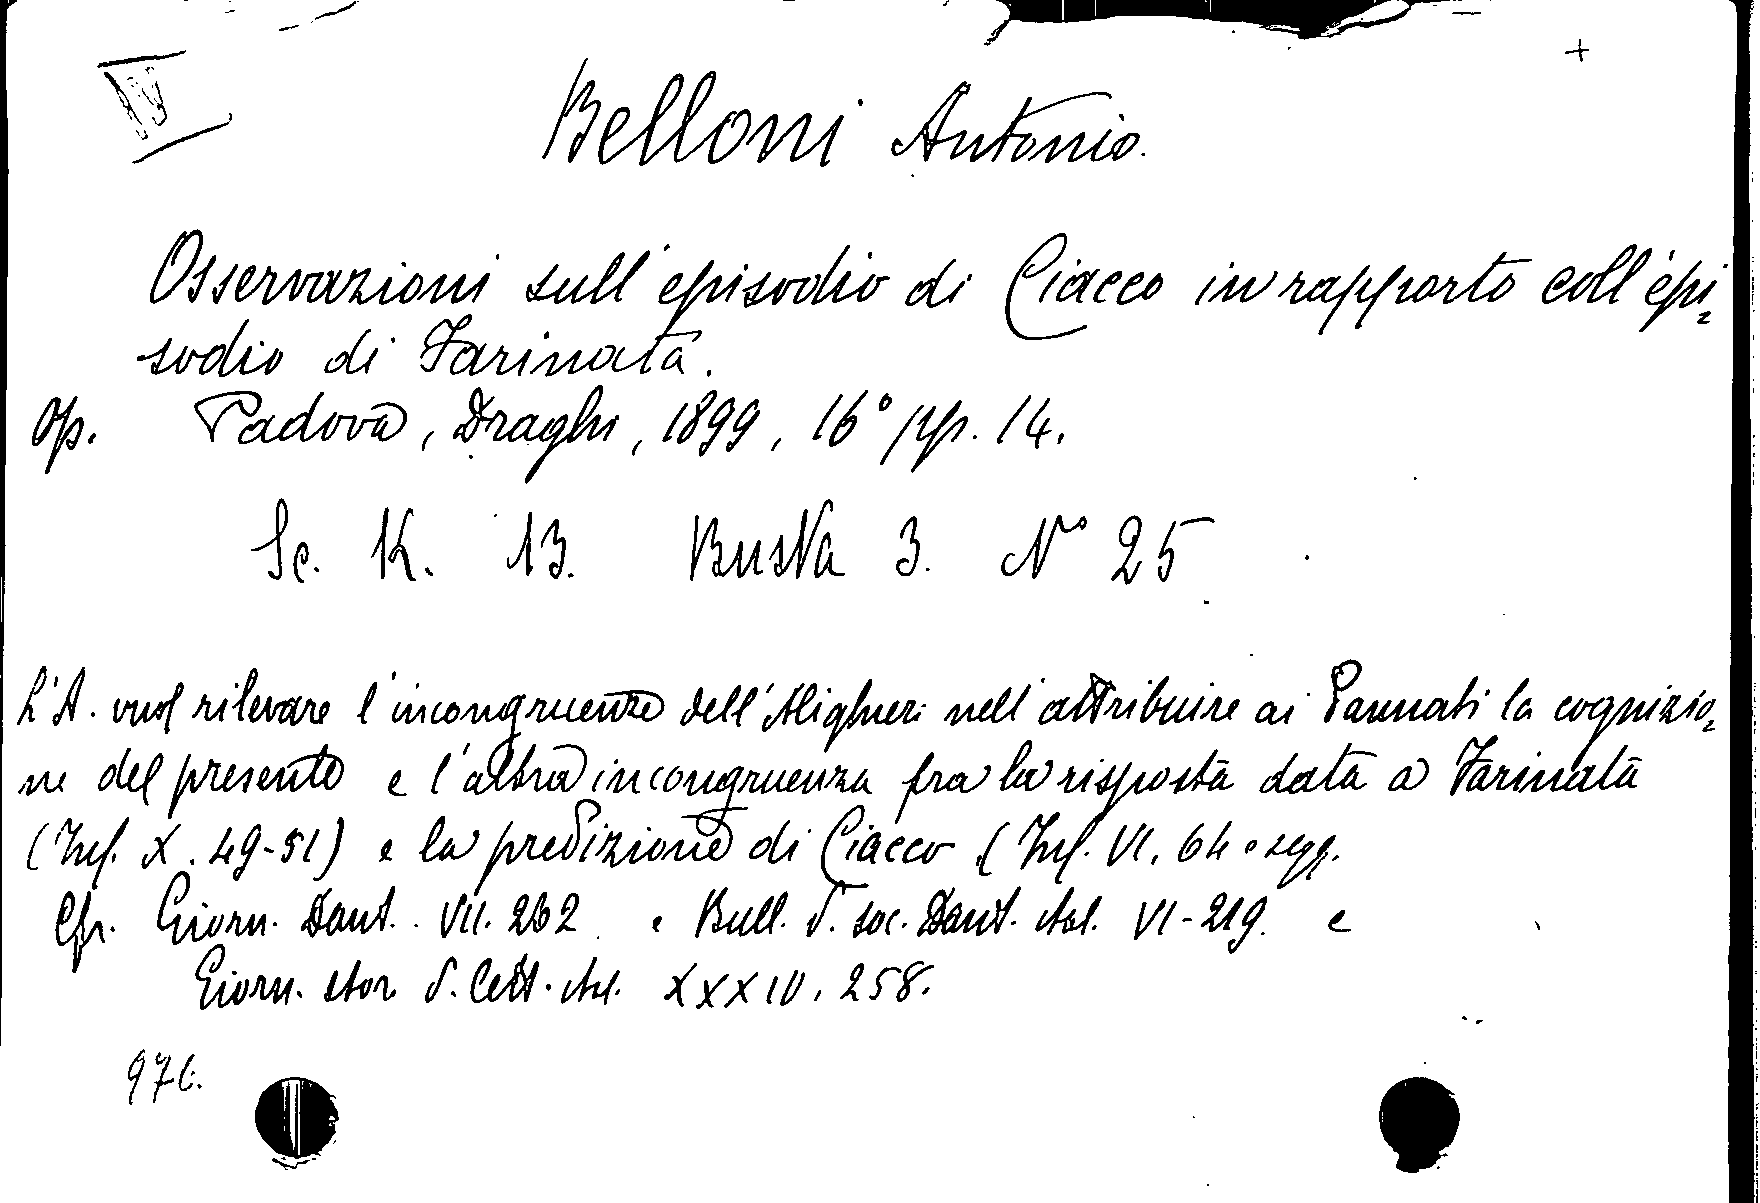 IV
+
Belloni Antonio.
Osservazioni sull'episodio di Ciacco in rapporto coll'epi=
sodio di Farinata.
Op. Padova, Draghi, 1899, 16° pp. 14.
Sc. K. 13. Busta 3. N° 25
L'A. vuol rilevare l'incongruenza dell'Alighieri nell'attribuire ai Dannati la cognizio=
ne del presente e l'altra incongruenza fra la risposta data a Farinata
(Inf. X. 49-51) e la predizione di Ciacco (Inf. VI. 64 e segg.
Cfr. Giorn. Dant. VII. 262 e Bull. d. soc. Dant. ital. VI-219. e
Giorn. stor d. Lett. ital. XXXIV. 258.